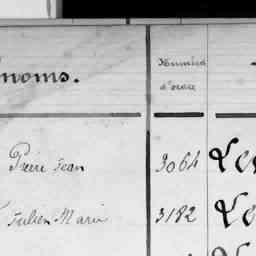 énoms.
Numéro
d'ordre
Pierre Jean 3064 Le
Julien Marie 3182 Le